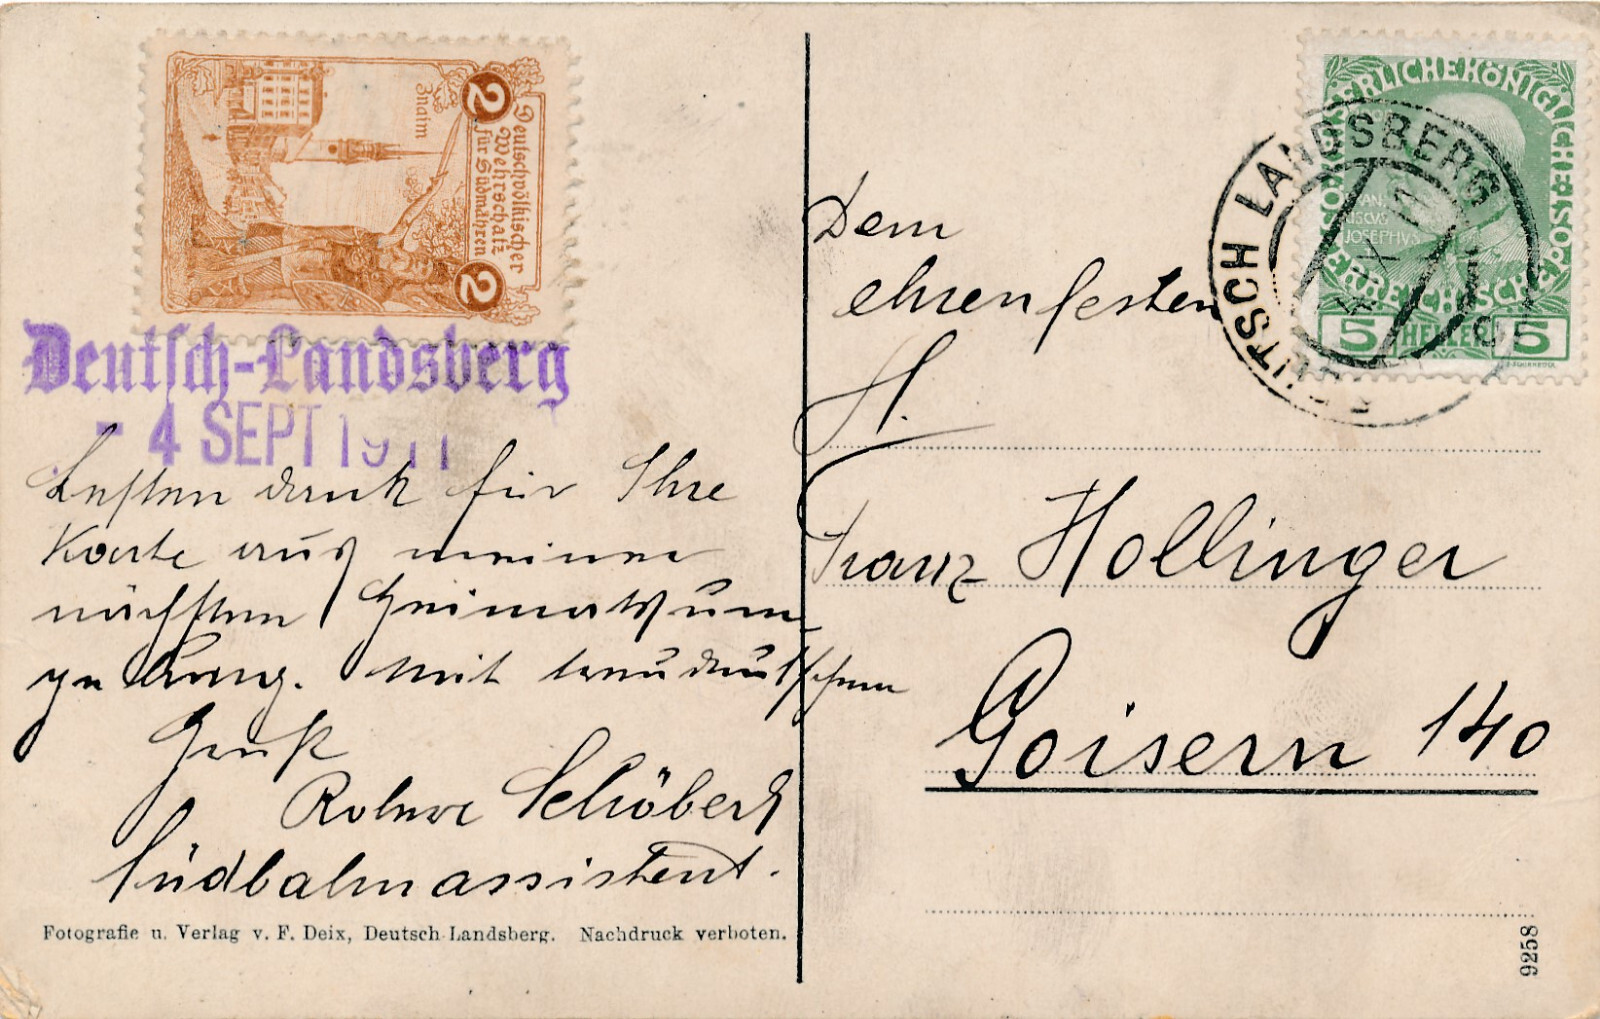 Deutschvölkischer
Wehrschatz
für Südmähren
2
2
Znaim
Deutsch-Landsberg
- 4 SEPT 1911
Besten dank für Ihre
Karte aus meiner
nächsten Heimatsum-
gebung. Mit treudeutschem
Gruß
Schöberl
Südbahnassistent.
Fotografie u. Verlag v. F. Deix, Deutsch-Landsberg. Nachdruck verboten.
KAISERLICHE KÖNIGLICHE ÖSTERREICHISCHE
FRANCISCUS
JOSEPHVS
5 HELLER 5
DEUTSCH LANDSBERG
Dem
ehrenfesten
H.
Franz Hollinger
Goisern 140
9258